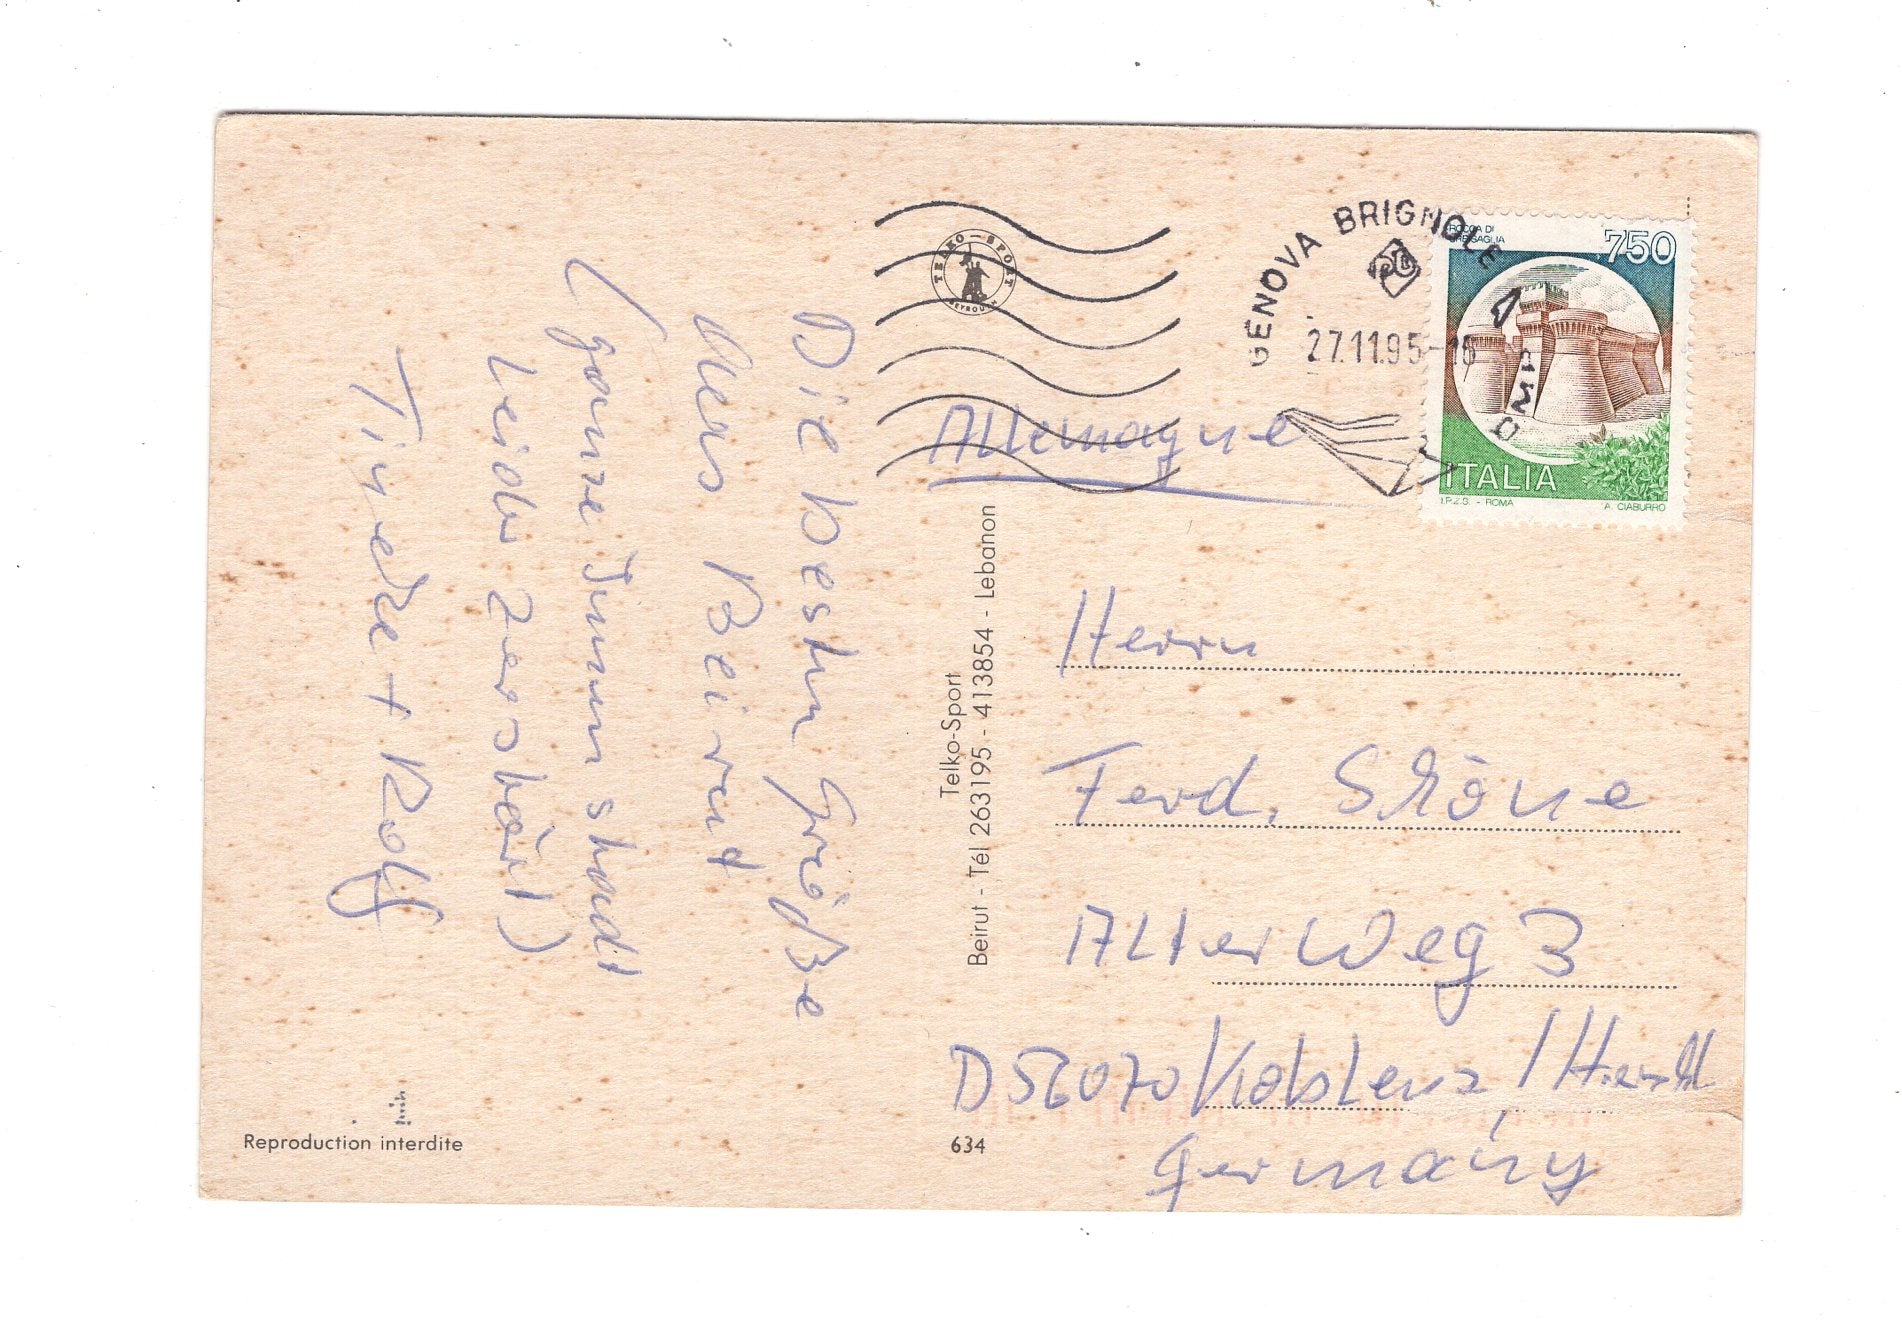 Die besten Grüße
aus Beirut
(ganze Innenstadt
leider zerstört)
+ Rolf
TELKO-SPORT
BEYROUTH
GENOVA BRIGNOLE
27.11.95-18
ROCCA DI
URBISAGLIA
750
ITALIA
I.P.Z.S. - ROMA
A. CIABURRO
Allemagne
Telko-Sport
Beirut - Tél 263195 - 413854 - Lebanon
Herrn
Ferd.
Alter Weg 3
D 56070 Koblenz /
Germany
Reproduction interdite
634